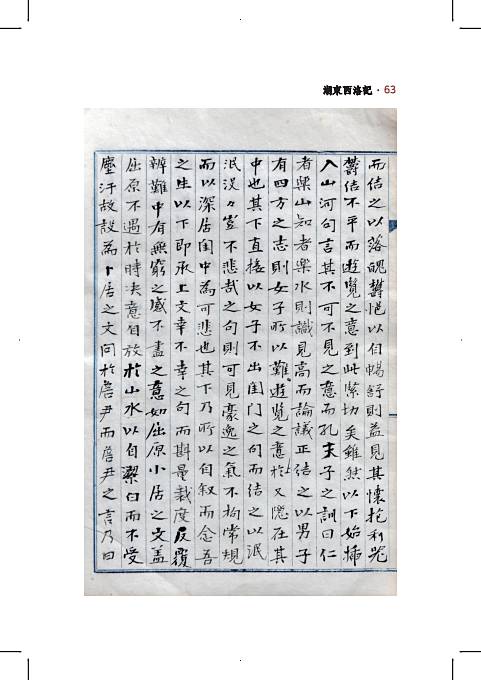 湖東西洛記 · 63
而結之以落魄鬱悒以自暢舒則益見其懷抱利器
鬱結不平而遊覽之意到此緊切矣雖然以下始插
入山河句言其不可不見之意而孔夫子之訓曰仁
者樂山知者樂水則識見高而論議正結之以男子
有四方之志則女子所以難遊覽之意於又隱在其
中也其下直接以女子不出閨门之句而結之以泯
泯沒々豈不悲哉之句則可見豪逸之氣不拘常規
而以深居閨中為可悲也其下乃所以自叙而念吾
之生以下即承上文幸不幸之句而斟量裁度反覆
辨難中有無窮之感不盡之意如屈原小居之文盖
屈原不遇於時决意自放於山水以自潔白而不受
塵汙故設為卜居之文问於詹尹而詹尹之言乃曰